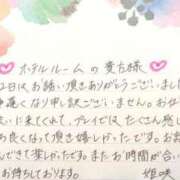 ホテルルームの貴方様
日はお誘い頂きありがとうございました
遅くなり申し訳ございません。お
に来てくれて、プレイではたくさん感じ
良くなって頂き嬉しかったです。
できて楽しかったです。またお時間が合い
お待ちしております。 姫咲